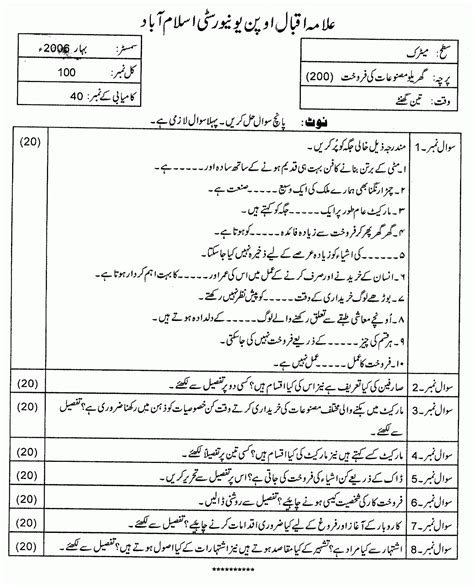 علامہ اقبال اوپن یونیورسٹی اسلام آباد
سطح: میٹرک
سمسٹر: بہار 2006ء
پرچہ: گھریلو مصنوعات کی فروخت (200)
کل نمبر: 100
وقت: تین گھنٹے
کامیابی کے نمبر: 40
نوٹ: پانچ سوال حل کریں۔ پہلا سوال لازمی ہے۔
سوال نمبر۔1 مندرجہ ذیل خالی جگہ کو پُر کریں۔ (20)
۱۔ مٹی کے برتن بنانے کا فن بہت ہی قدیم ہونے کے ساتھ سادہ اور ۔۔۔۔۔ ہے۔
۲۔ چمڑا رنگنا بھی ہمارے ملک کی ایک وسیع ۔۔۔۔۔ صنعت ہے۔
۳۔ مارکیٹ عام طور پر ایک ۔۔۔۔۔ جگہ کو کہتے ہیں۔
۴۔ گھر گھر پھر کر فروخت سے زیادہ فائدہ ۔۔۔۔۔ کو ہوتا ہے۔
۵۔ ۔۔۔۔۔ کی اشیاء کو زیادہ عرصے کے لیے ذخیرہ نہیں کیا جا سکتا۔
۶۔ انسان کے خریدنے اور صرف کرنے کے عمل میں اس کی عمر اور ۔۔۔۔۔ کا بہت اہم کردار ہوتا ہے۔
۷۔ بوڑھے لوگ خریداری کے وقت ۔۔۔۔۔ کو پیش نظر نہیں رکھتے۔
۸۔ اُونچے معاشی طبقے سے تعلق رکھنے والے لوگ ۔۔۔۔۔ کے دلدادہ ہوتے ہیں۔
۹۔ ہر قسم کی چیز ۔۔۔۔۔ کے ذریعے فروخت نہیں کی جا سکتی۔
۱۰۔ فروخت کا عمل ۔۔۔۔۔ عمل نہیں ہے۔
سوال نمبر۔2 صارفین کی کیا تعریف ہے نیز اس کی کیا اقسام ہیں؟ کسی دو پر تفصیل سے لکھئے۔ (20)
سوال نمبر۔3 مارکیٹ میں بکنے والی مختلف مصنوعات کی خریداری کرتے وقت کن خصوصیات کو ذہن میں رکھنا ضروری ہے؟ تفصیل سے لکھئے۔ (20)
سوال نمبر۔4 مارکیٹ کسے کہتے ہیں نیز مارکیٹ کی کیا اقسام ہیں؟ کسی تین پر تفصیلاً لکھئے۔ (20)
سوال نمبر۔5 ڈاک کے ذریعے کن اشیاء کی فروخت کی جاتی ہے؟ اس پر تفصیل سے تحریر کریں۔ (20)
سوال نمبر۔6 فروخت کار کی شخصیت کیسی ہونے چاہیئے؟ تفصیل سے روشنی ڈالیں۔ (20)
سوال نمبر۔7 کاروبار کے آغاز اور فروغ کے لیے کیا ضروری اقدامات کرنے چاہیئے؟ تفصیل سے لکھئے۔ (20)
سوال نمبر۔8 اشتہار سے کیا مراد ہے؟ تشہیر کے کیا مقاصد ہوتے ہیں نیز اشتہارات کے کیا اصول ہوتے ہیں؟ تفصیل سے لکھئے۔ (20)
**********